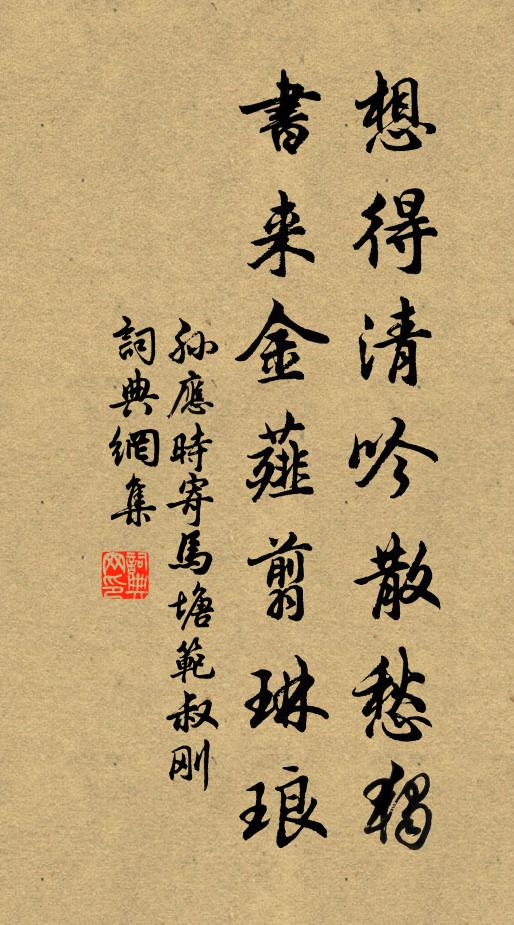 想得清吟散愁獨
書来金薤翦琳琅
孙應時寄馬塘範叔刚
詞典網集
詞典網印